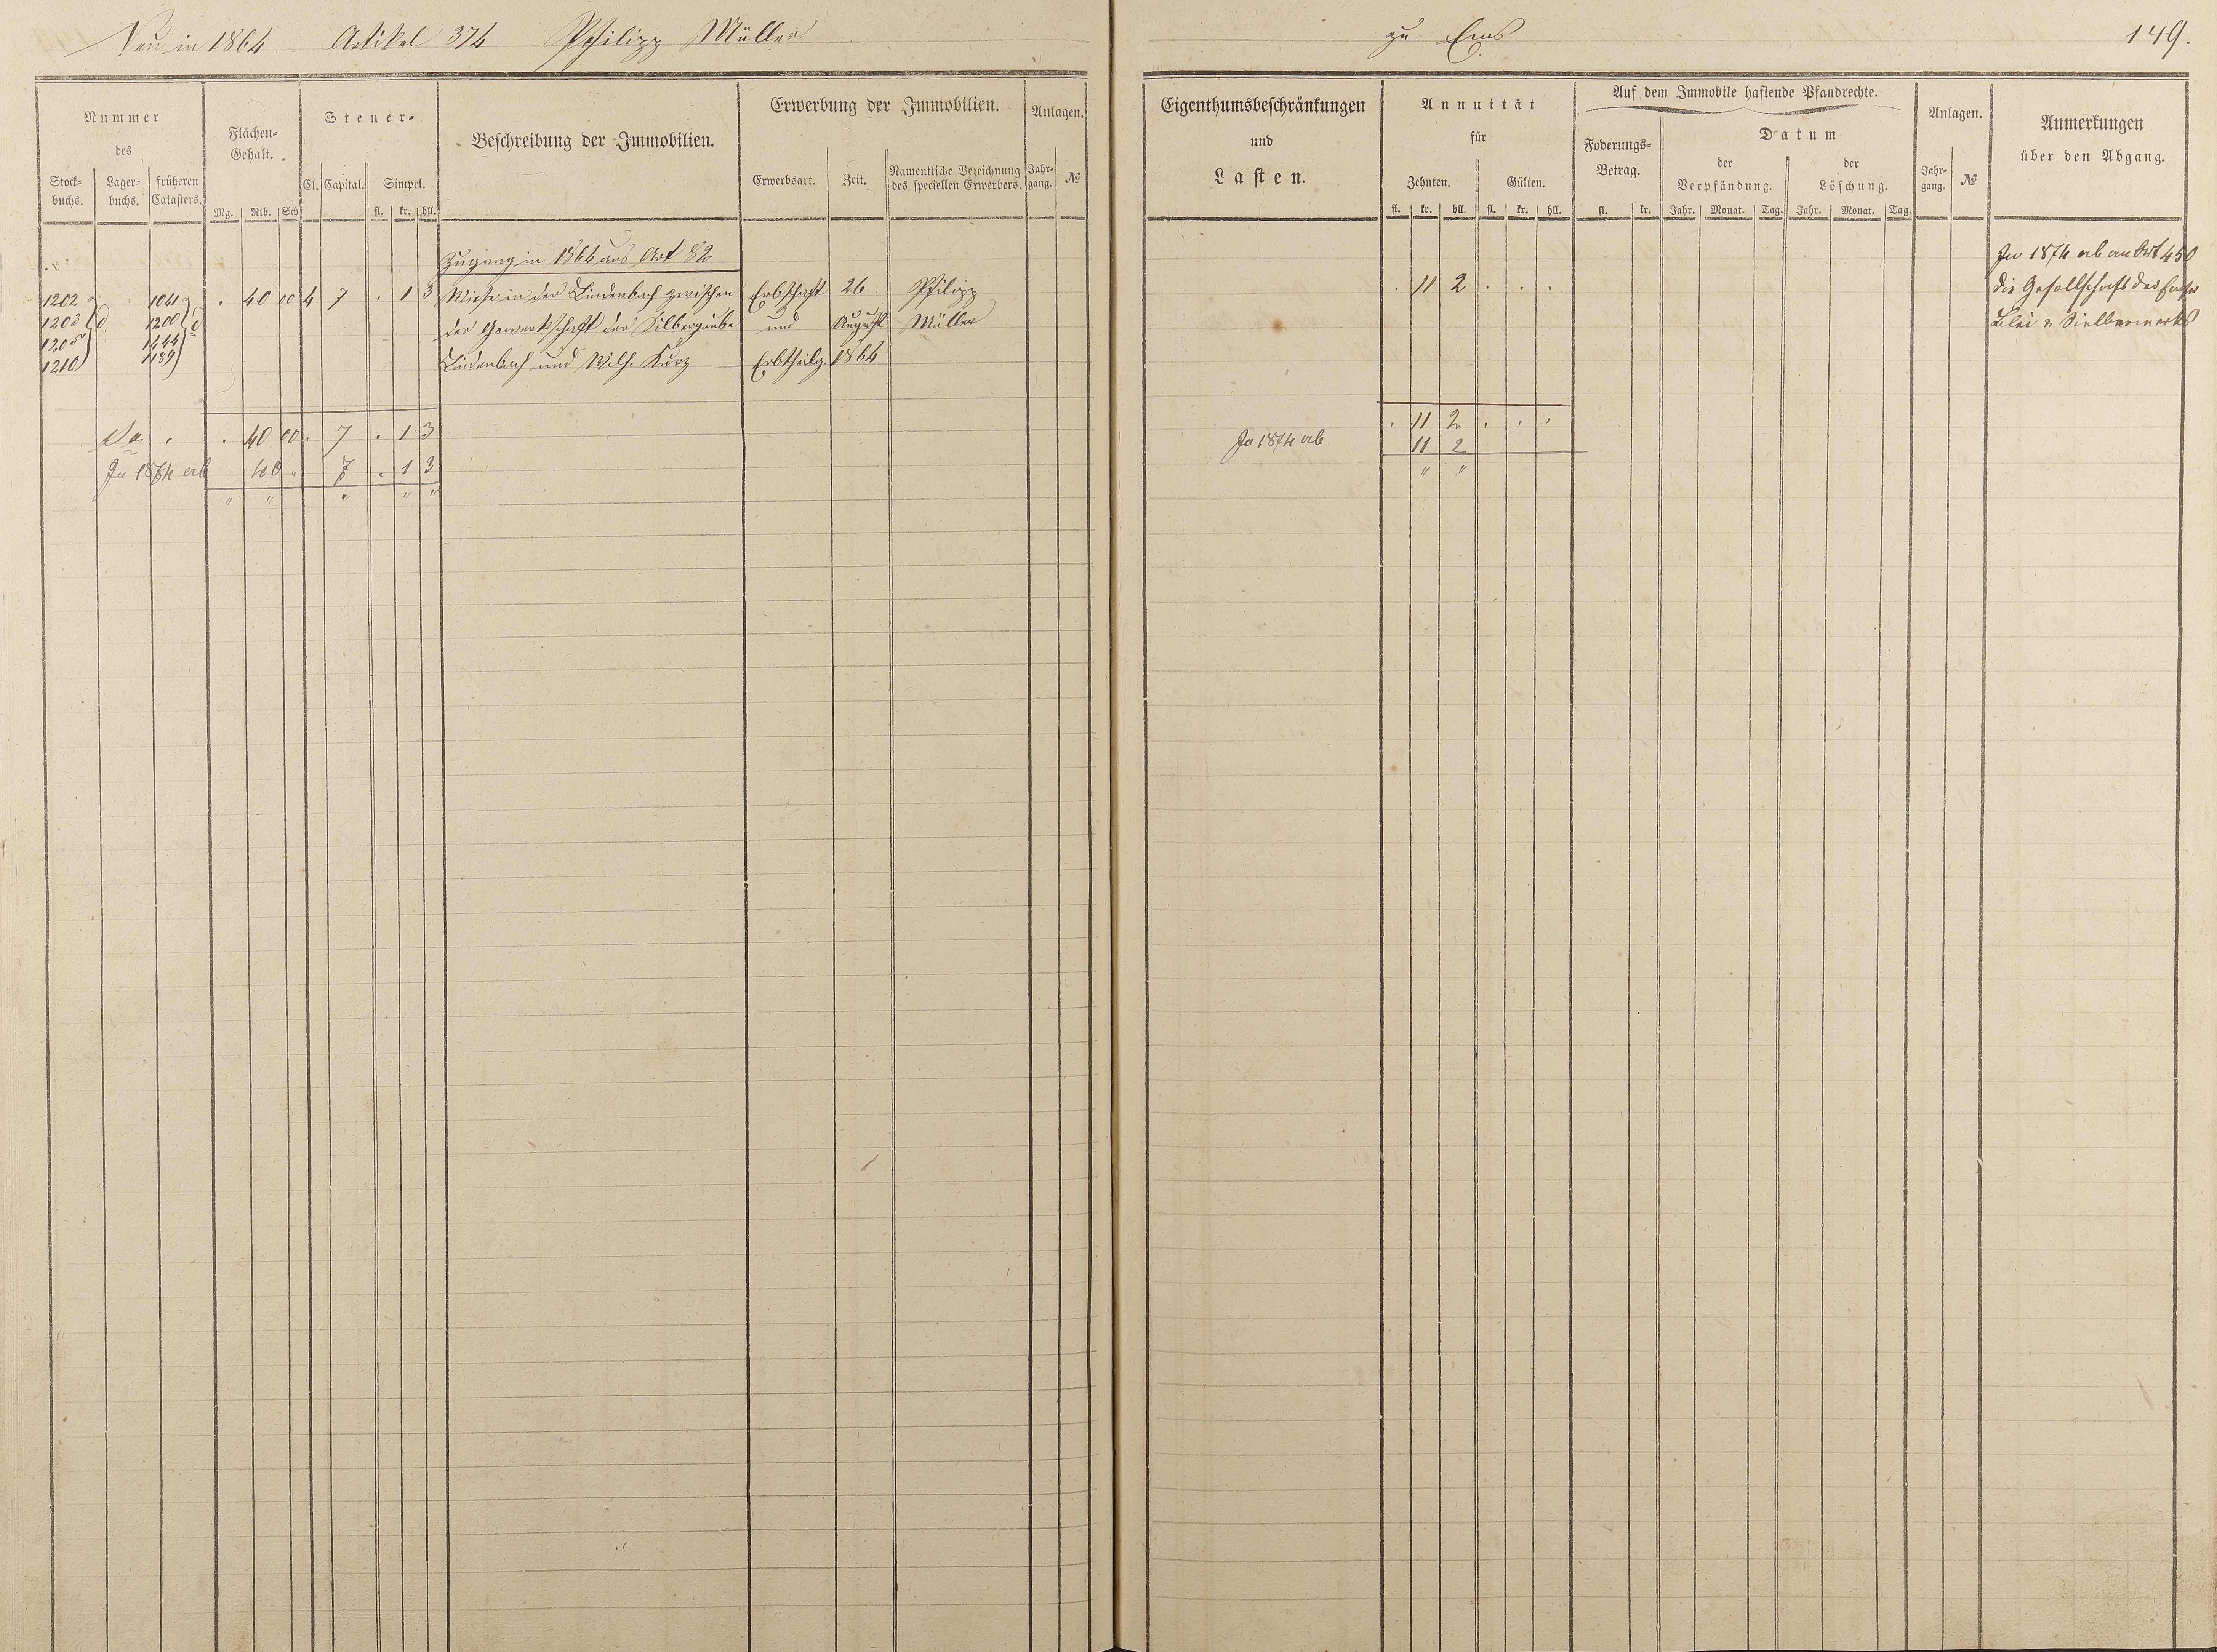 Neu in 1864 Artikel 374 Philipp Müller
zu Ems 149.
Nummer
des
Stock-
buchs.
Lager-
buchs.
früheren
Catasters.
Flächen-
Gehalt.
Mg. Rth. Sch
Steuer-
Cl. Capital. Simpel.
fl. kr. hll.
Beschreibung der Immobilien.
Erwerbung der Immobilien.
Erwerbsart. Zeit. Namentliche Bezeichnung
des speciellen Erwerbers.
Anlagen.
Jahr-
gang. №
Eigenthumsbeschränkungen
und
Lasten.
Annuität
für
Zehnten. Gülten.
fl. kr. hll. fl. kr. hll.
Auf dem Immobile haftende Pfandrechte.
Foderungs-
Betrag.
fl. kr.
Datum
der
Verpfändung.
der
Löschung.
Jahr. Monat. Tag. Jahr. Monat. Tag.
Anlagen.
Jahr-
gang. №
Anmerkungen
über den Abgang.
Zugang in 1864 aus Art 82
In 1874 ab an Art 450
1202 1041 . 40 00 4 7 . 1 3 Wiese in der Lindenbach zwischen Erbschaft 26 Philipp . 11 2 . . . die Gesellschaft des Emser
1203 1200 der Gewerkschaft der Silbergrube und August Müller Blei u Silberwerks
1205 1444
1210 1189 Lindenbach und Wilh. Kurz Erbtheilg. 1864
Sa . . 40 00 . 7 . 1 3 . 11 2 . . .
In 1874 ab 40 . 7 . 1 3 In 1874 ab 11 2
" " " " " " "